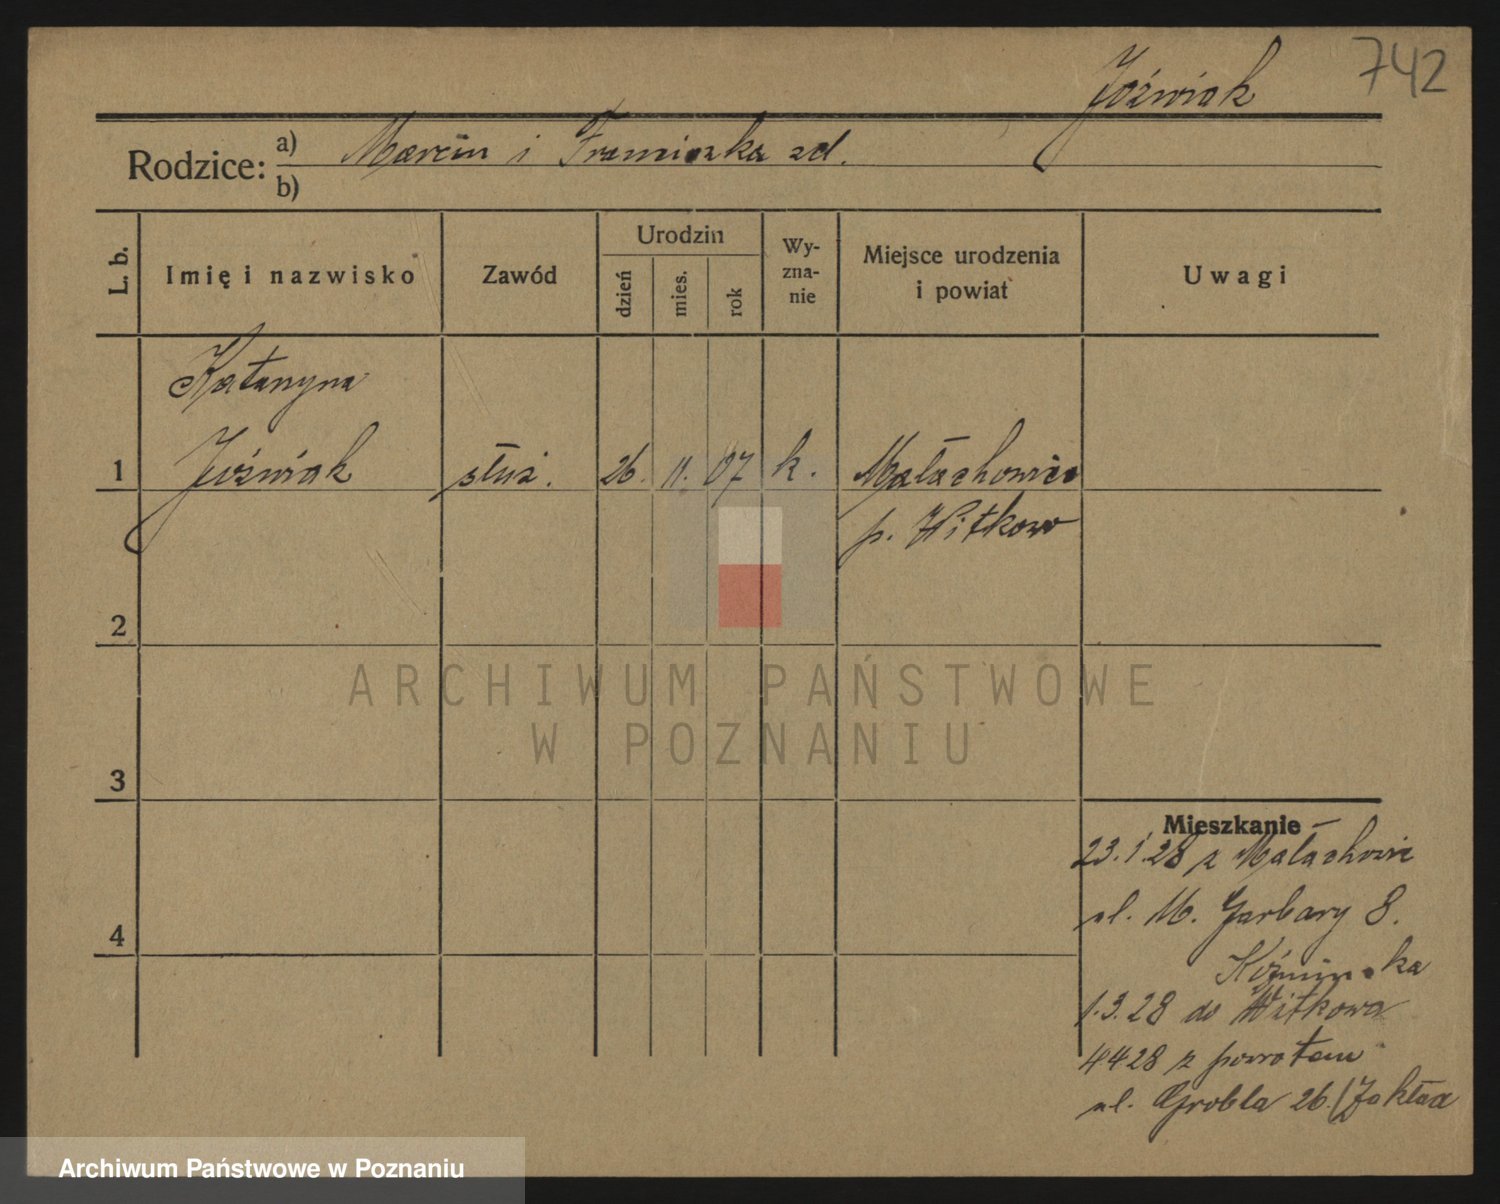 742
Jóźwiak
Rodzice: a) Marcin i Franciszka zd.
b)
L. b.
Imię i nazwisko
Zawód
Urodzin
dzień
mies.
rok
Wy-
zna-
nie
Miejsce urodzenia
i powiat
Uwagi
Katarzyna
1 Jóźwiak służ. 26. 11. 07 k. Małachowice
p. Witkowo
2
ARCHIWUM PAŃSTWOWE
W POZNANIU
3
Mieszkanie
23.1.28 z Małachowic
ul. M. Garbary 8.
Koźmińska
4
1.3.28 do Witkowa
4428 z powrotem
ul. Grobla 26. (Zakład
Archiwum Państwowe w Poznaniu